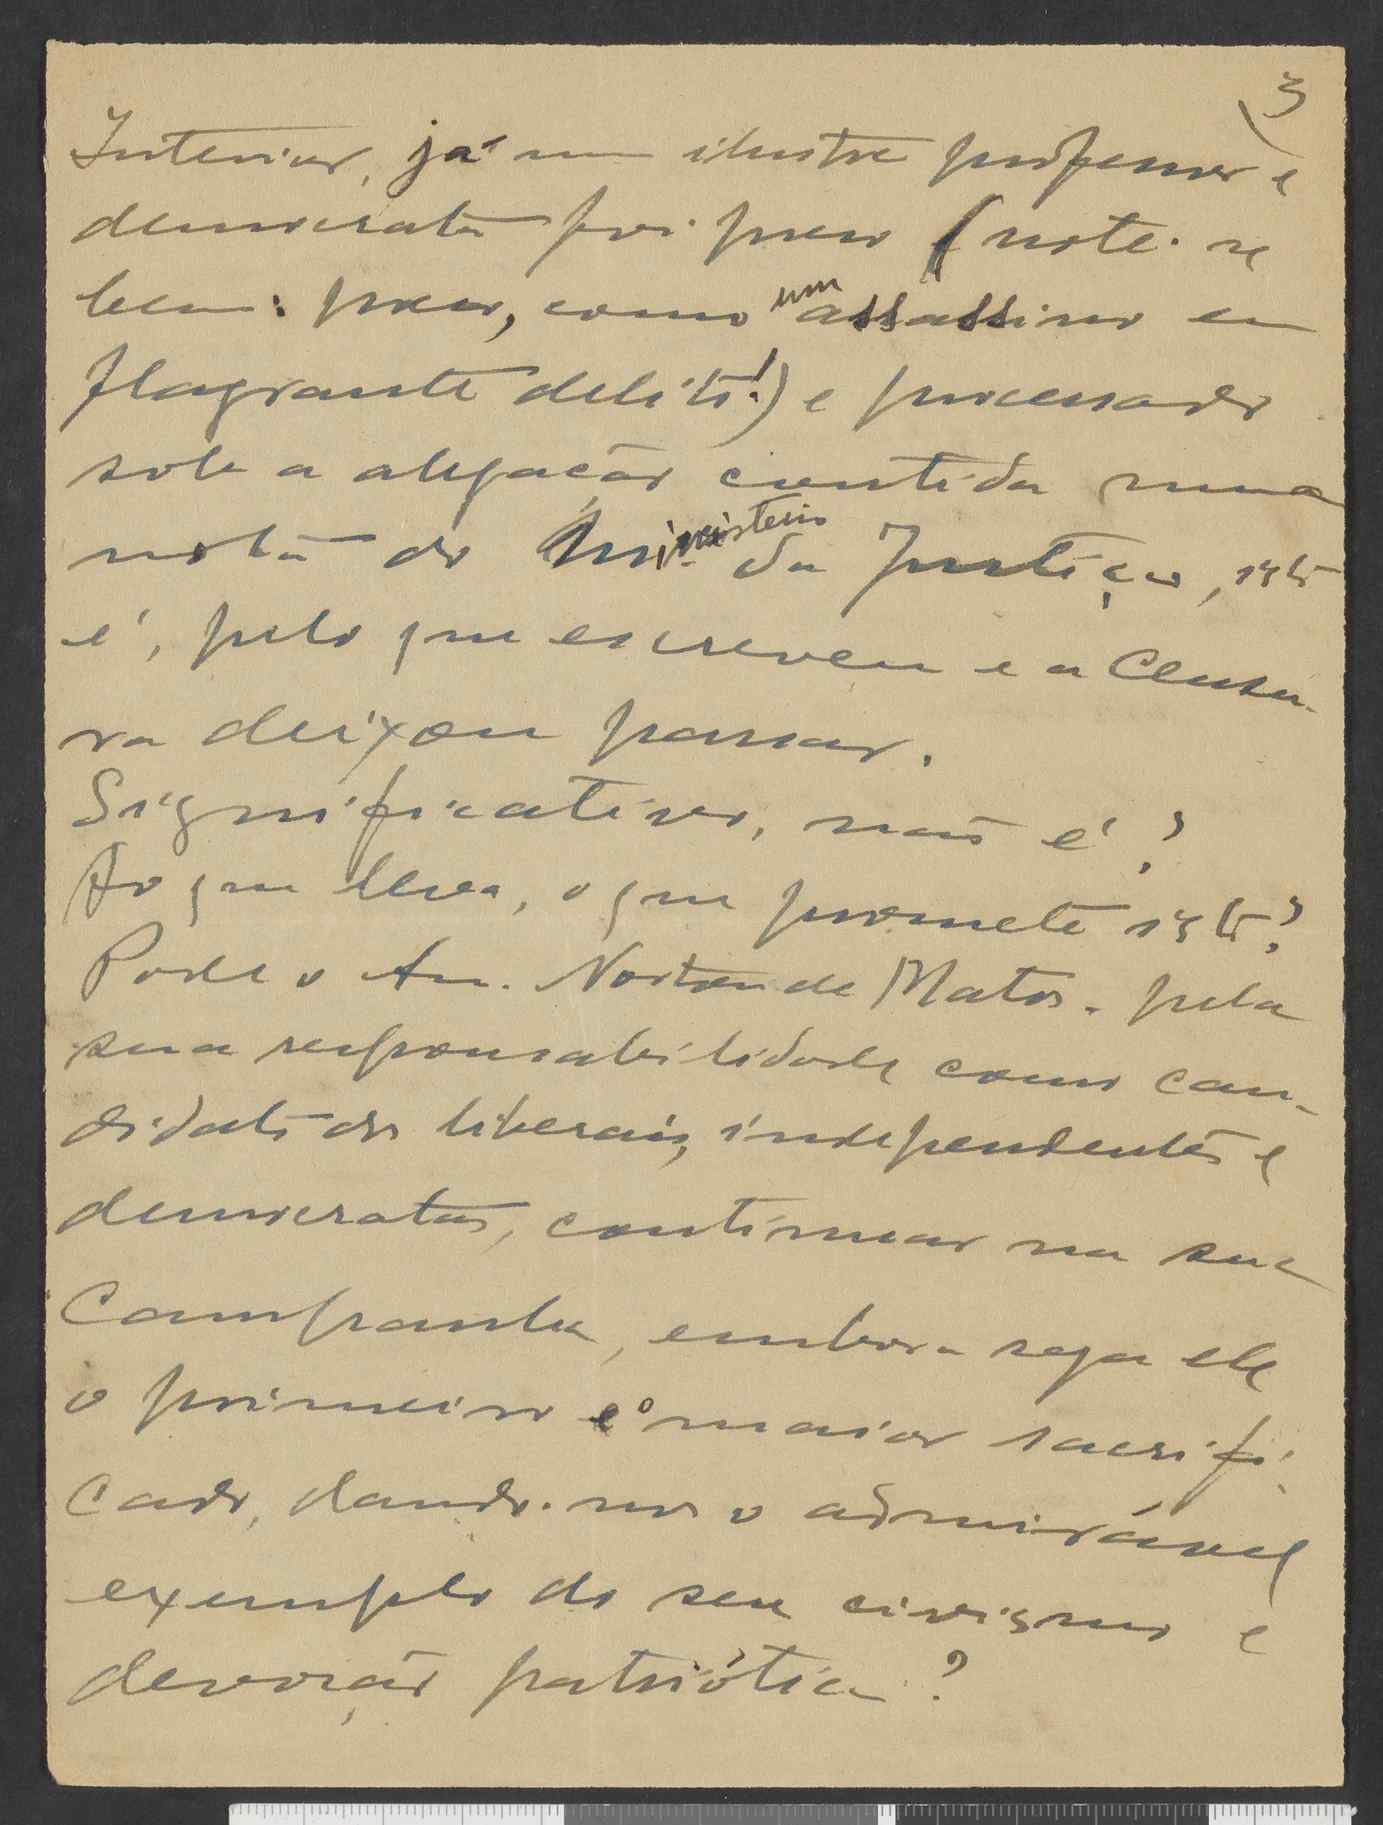 3
Interior, já um ilustre professor e
democrata foi preso (note-se
bem: preso, como um assassino em
flagrante delito!) e processado
sob a alegação contida numa
nota do Ministerio da Justiça, isto
é, pelo que escreveu e a Censu-
ra deixou passar.
Significativo, não é?
Ao que leva, o que promete isto?
Pode o Norton de Matos - pela
sua responsabilidade como can-
didato dos liberais, independentes e
democratas, continuar na sua
Campanha, embora seja ele
o primeiro e o maior sacrifi-
cado, dando-nos o admirável
exemplo do seu civismo e
devoção patriótica?